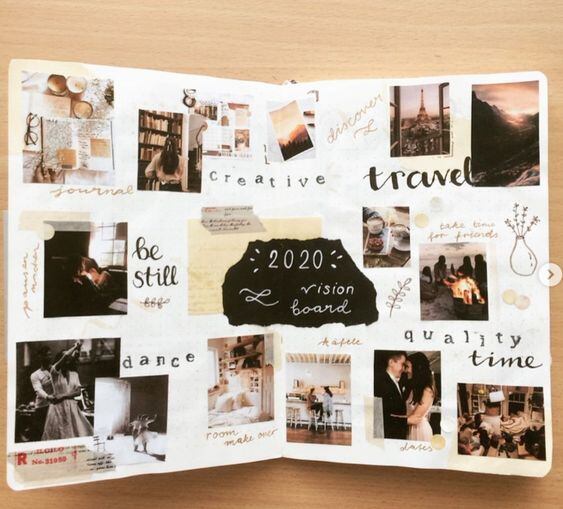 journal
creative
discover
travel
pausen
be
still
2020
vision
board
take time
for friends
quality
time
dance
room
make over
dates
R
No. 31059